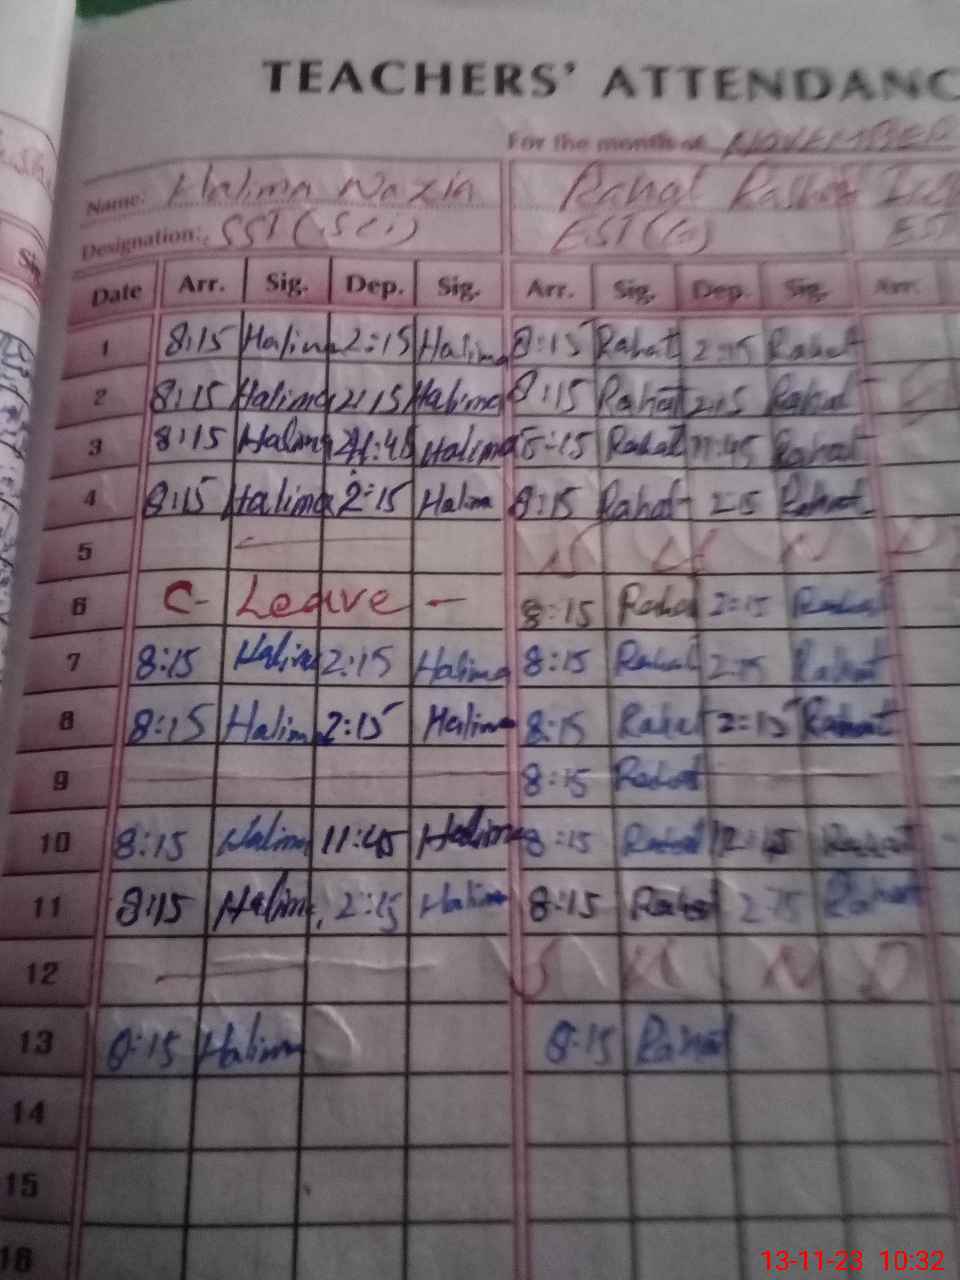 TEACHERS' ATTENDANC
For the month of NOVEMBER
Name: Halima Nazia Rahat
Designation: SST (Sci) EST (G) EST
Date Arr. Sig. Dep. Sig. Arr. Sig. Dep. Sig. Arr.
1 8:15 Halima 2:15 Halima 8:15 Rahat 2:15 Rahat
2 8:15 Halima 2:15 Halima 8:15 Rahat 2:15 Rahat
3 8:15 Halima 11:45 Halima 8:15 Rahat 11:45 Rahat
4 8:15 Halima 2:15 Halima 8:15 Rahat 2:15 Rahat
5 — S U N D
6 C- Leave — 8:15 Rahat 2:15 Rahat
7 8:15 Halima 2:15 Halima 8:15 Rahat 2:15 Rahat
8 8:15 Halima 2:15 Halima 8:15 Rahat 2:15 Rahat
9 8:15 Rahat
10 8:15 Halima 11:45 Halima 8:15 Rahat 12:45 Rahat
11 8:15 Halima 2:15 Halima 8:15 Rahat 2:15 Rahat
12 — S U N D
13 8:15 Halima 8:15 Rahat
14
15
16
13-11-23 10:32